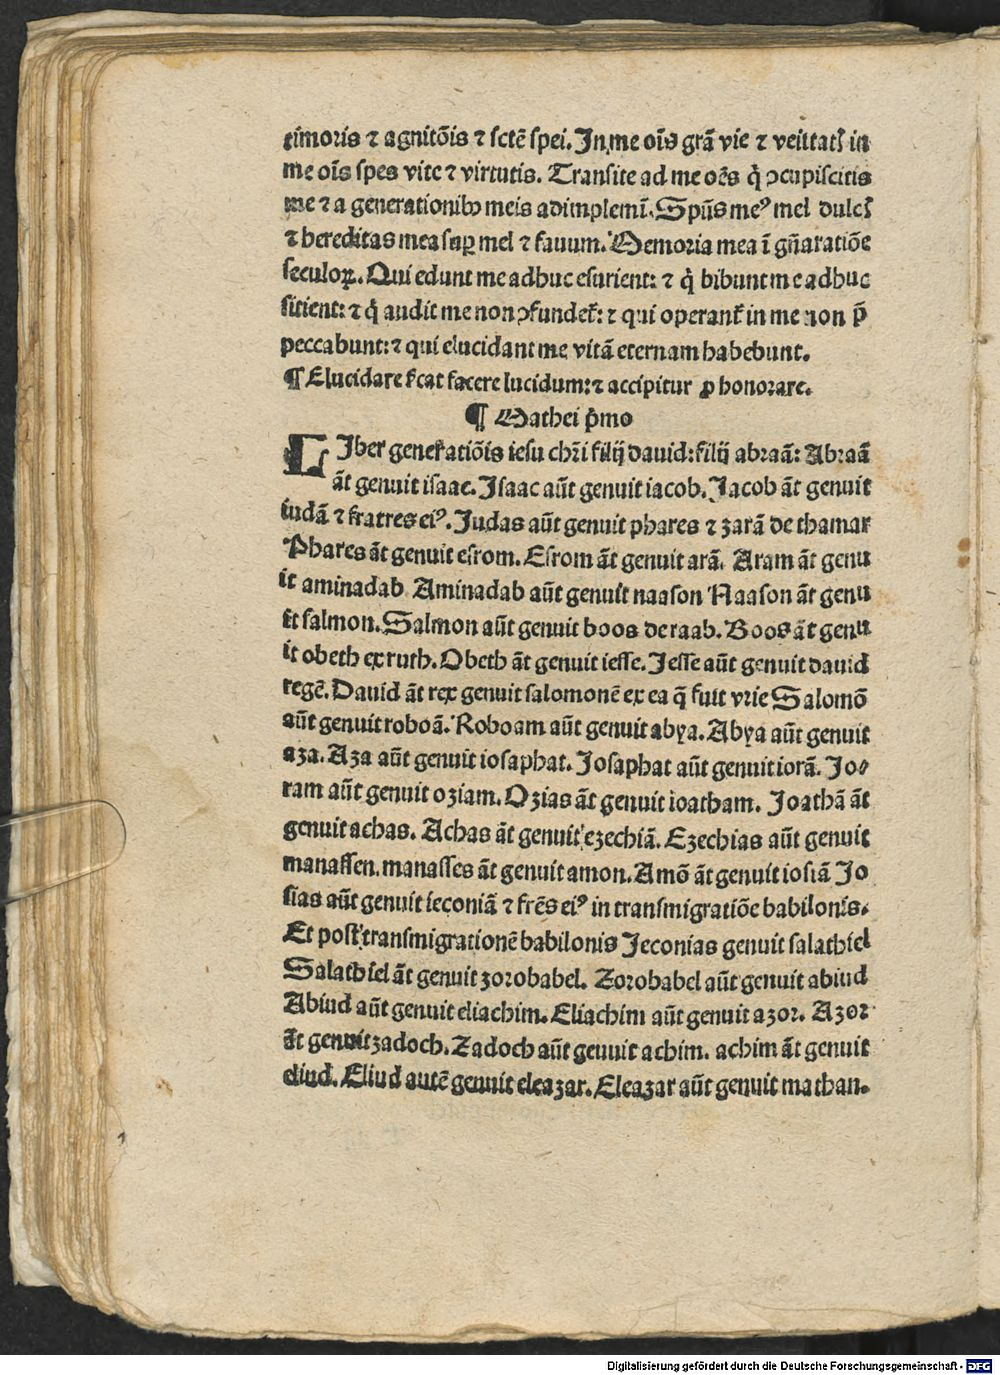 timoris ⁊ agnitōis ⁊ sctē spei. In me oīs grā vie ⁊ veritatꝭ in
me oīs spes vite ⁊ virtutis. Transite ad me oēs q̇ ↄcupiscitis
me ⁊ a generationibꝰ meis adimplemī. Spūs meꝰ mel dulcꝭ
⁊ hereditas mea suꝑ mel ⁊ fauum. Memoria mea ī gn̄aratiōe
seculoꝝ. Qui edunt me adhuc esurient: ⁊ q̇ bibunt me adhuc
sitient: ⁊ q̇ audit me non ↄfundet᷑: ⁊ qui operant᷑ in me non p̄
peccabunt: ⁊ qui elucidant me vitā eternam habebunt.
¶ Elucidare ẜcat facere lucidum: ⁊ accipitur ꝓ honorare.
¶ Mathei p̄mo
LIber generatiōis iesu chꝛi filij dauid: filij abraā: Abraā
āt genuit isaac. Isaac aūt genuit iacob. Jacob āt genuit
iudā ⁊ fratres eiꝰ. Judas aūt genuit phares ⁊ zarā de thamar
Phares āt genuit esrom. Esrom āt genuit arā. Aram āt genu
it aminadab Aminadab aūt genuit naason Naason āt genu
it salmon. Salmon aūt genuit boos de raab. Boos āt genu
it obeth ex ruth. Obeth āt genuit iesse. Jesse aūt genuit dauid
regē. Dauid āt rex genuit salomonē ex ea q̄ fuit vrie Salomō
aūt genuit roboā. Roboam aūt genuit abya. Abya aūt genuit
aza. Aza aūt genuit iosaphat. Josaphat aūt genuit iorā. Jo⸗
ram aūt genuit oziam. Ozias āt genuit ioatham. Joathā āt
genuit achas. Achas āt genuit ezechiā. Ezechias aūt genuit
manassen. manasses āt genuit amon. Amō āt genuit iosiā Jo
sias aūt genuit ieconiā ⁊ frēs eiꝰ in transmigratiōe babilonis.
Et post transmigrationē babilonis Jeconias genuit salathiel
Salathiel āt genuit zorobabel. Zorobabel aūt genuit abiud
Abiud aūt genuit eliachim. Eliachim aūt genuit azor. Azor
āt genuit zadoch. Zadoch aūt genuit achim. achim āt genuit
eliud. Eliud autē genuit eleazar. Eleazar aūt genuit mathan.
Digitalisierung gefördert durch die Deutsche Forschungsgemeinschaft - DFG